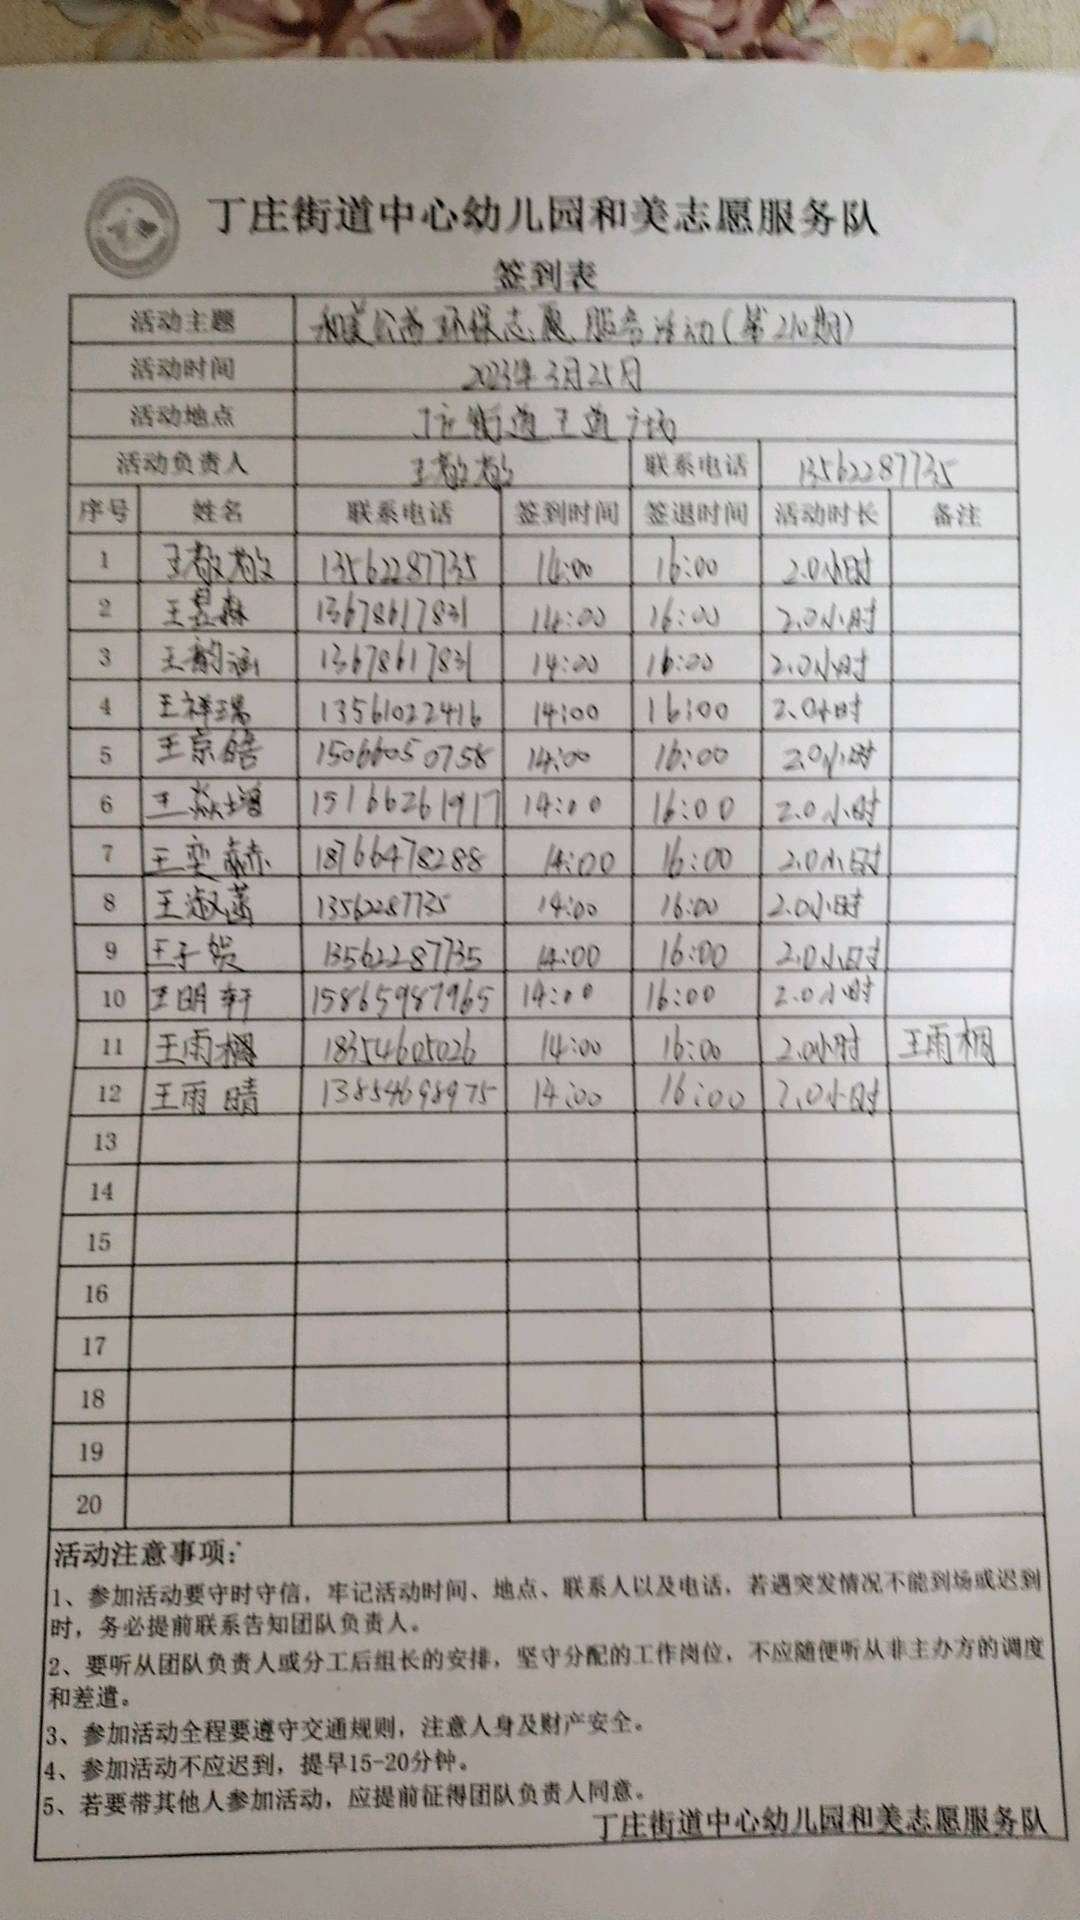 丁庄街道中心幼儿园和美志愿服务队
签到表
活动主题 和美公益环保志愿服务活动(第210期)
活动时间 2023年3月25日
活动地点 丁庄街道王道广场
活动负责人 王敬敬 联系电话 13562287735
序号 姓名 联系电话 签到时间 签退时间 活动时长 备注
1 王敬敬 13562287735 14:00 16:00 2.0小时
2 王昱森 13678617831 14:00 16:00 2.0小时
3 王韵涵 13678617831 14:00 16:00 2.0小时
4 王祥瑞 13561022416 14:00 16:00 2.0小时
5 王京皓 15066050758 14:00 16:00 2.0小时
6 王焱增 15166261917 14:00 16:00 2.0小时
7 王奕赫 18766478288 14:00 16:00 2.0小时
8 王淑菡 13562287735 14:00 16:00 2.0小时
9 王子 13562287735 14:00 16:00 2.0小时
10 王明轩 15865987965 14:00 16:00 2.0小时
11 王雨桐 18354605026 14:00 16:00 2.0小时 王雨桐
12 王雨晴 13854698975 14:00 16:00 2.0小时
13
14
15
16
17
18
19
20
活动注意事项:
1、参加活动要守时守信，牢记活动时间、地点、联系人以及电话，若遇突发情况不能到场或迟到
时，务必提前联系告知团队负责人。
2、要听从团队负责人或分工后组长的安排，坚守分配的工作岗位，不应随便听从非主办方的调度
和差遣。
3、参加活动全程要遵守交通规则，注意人身及财产安全。
4、参加活动不应迟到，提早15-20分钟。
5、若要带其他人参加活动，应提前征得团队负责人同意。
丁庄街道中心幼儿园和美志愿服务队